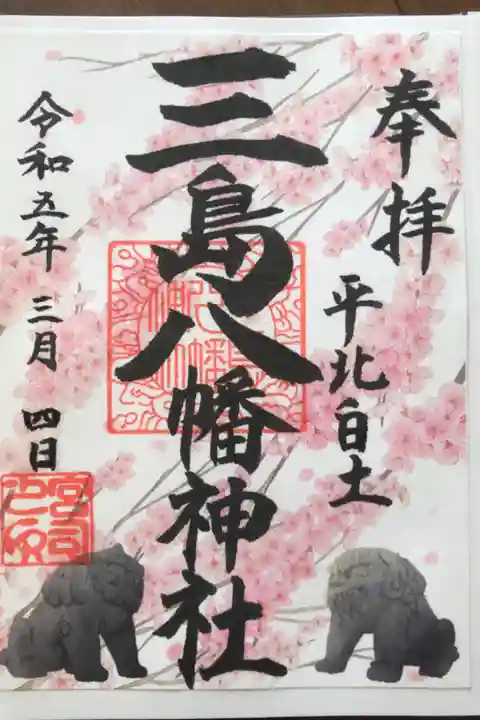 奉拝
平北白土
三島八幡神社
令和五年 三月 四日
宮司